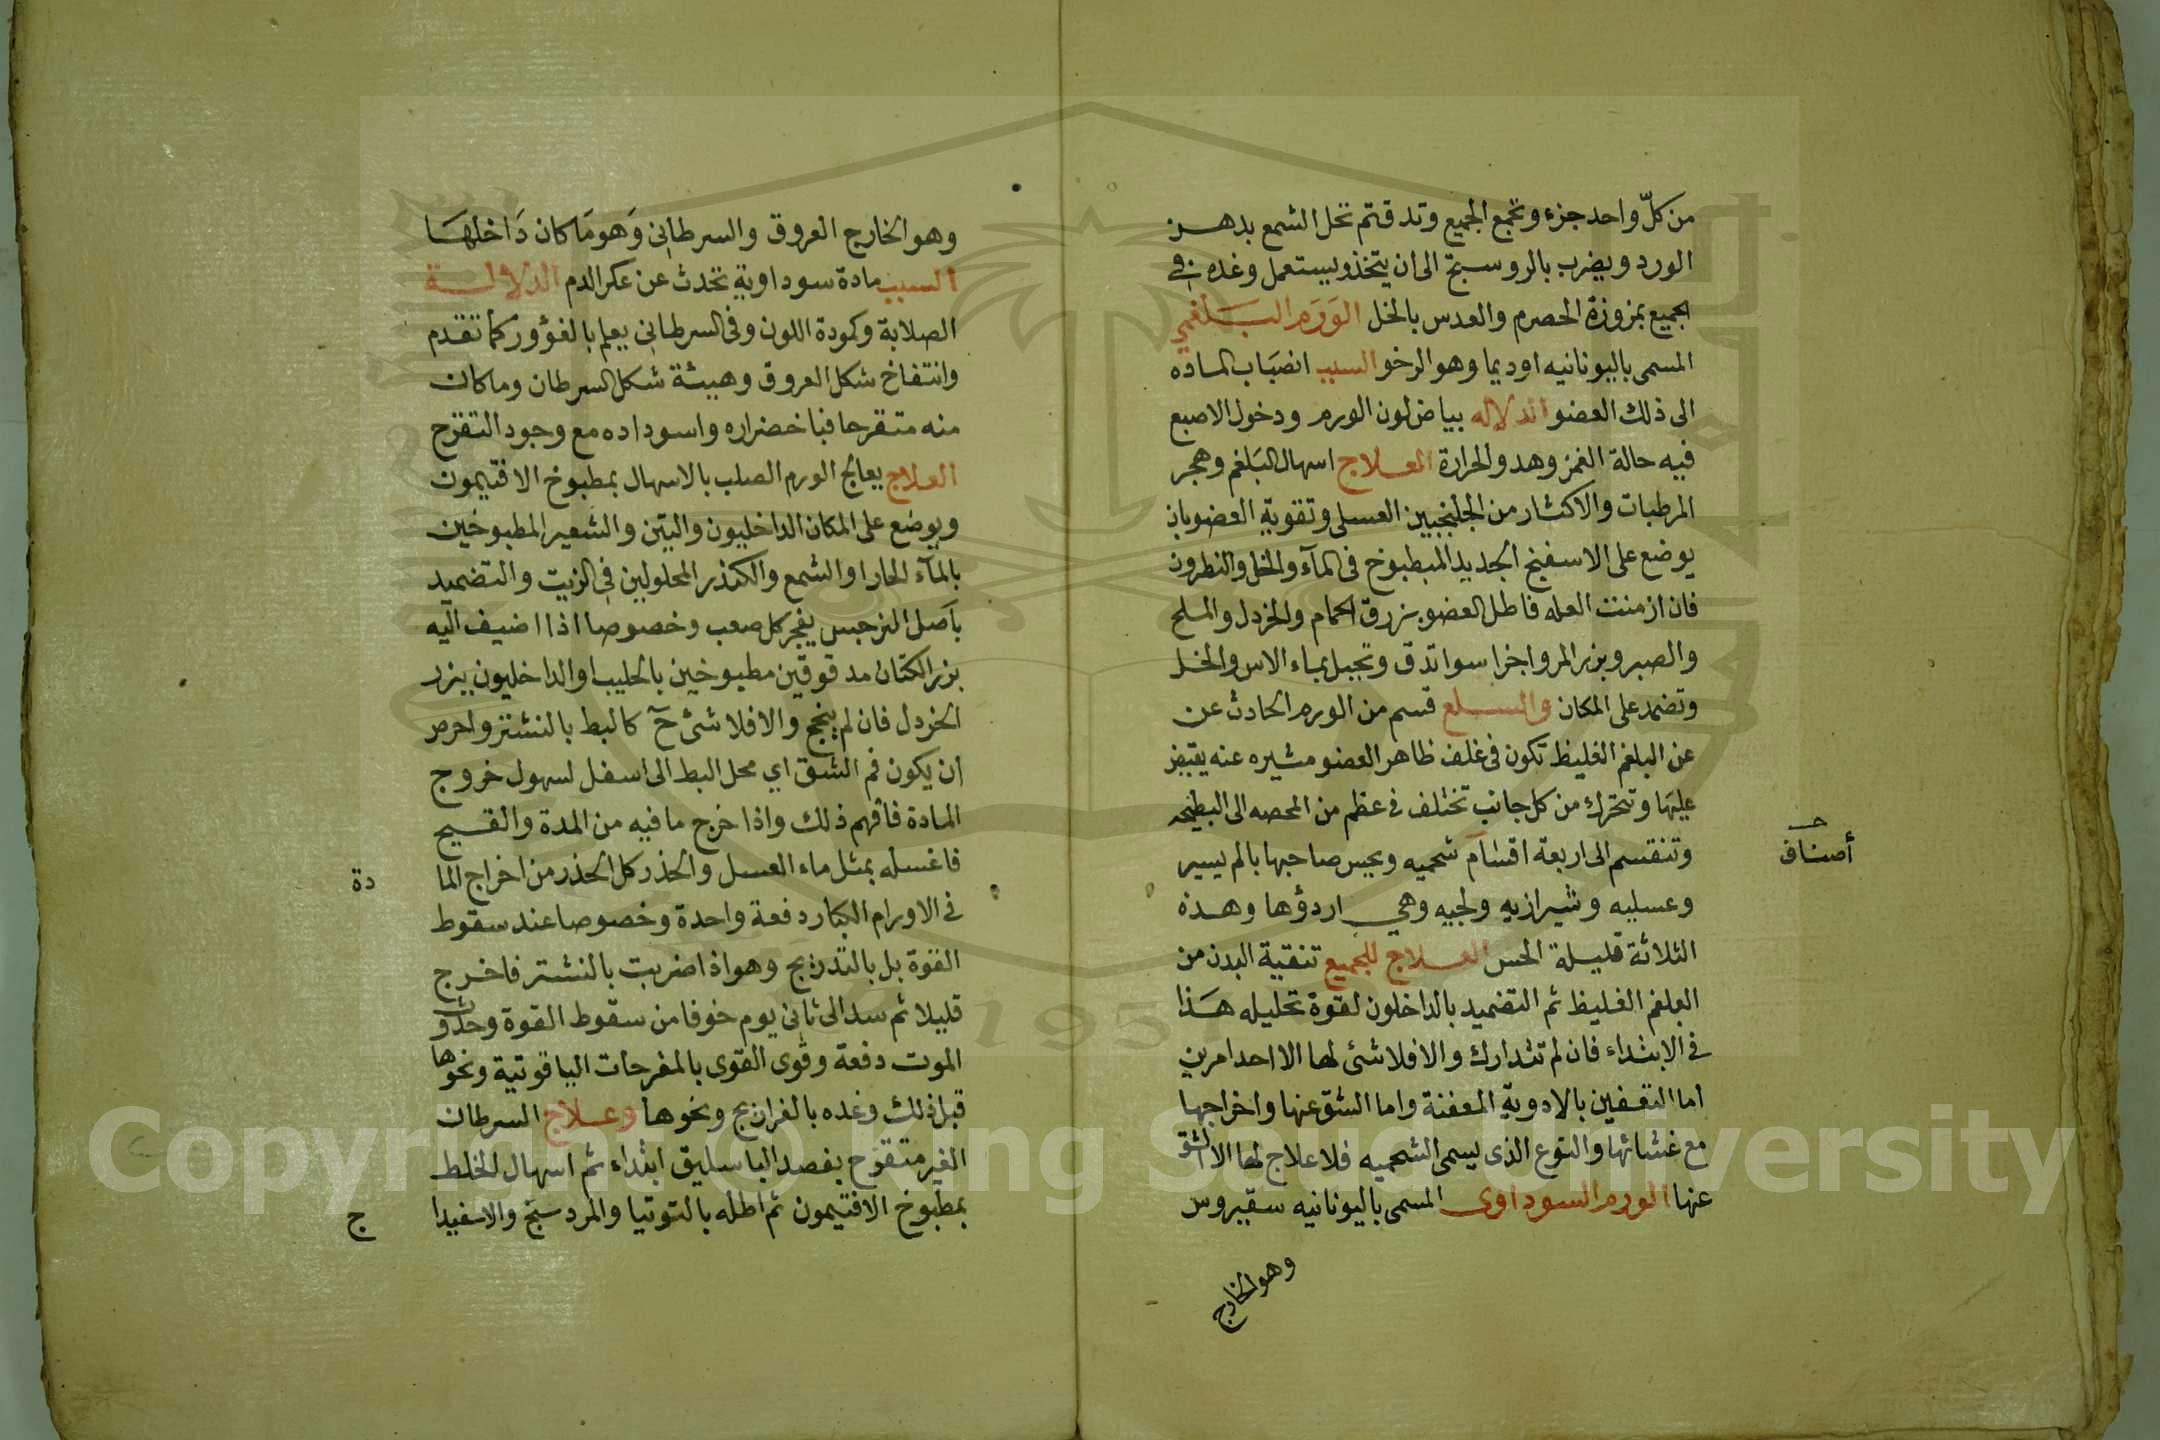 من كلّ واحد جزء وتجمع الجميع وتدق ثم تحل الشمع بدهن
الورد ويضرب بالروسبخ الى ان يتخذ ويستعمل وغده في
الجميع بمزوزة الحصرم والعدس بالخل الوَرَم البَلغمي
المسمى باليونانيه اوديما وهو الرخو السبب انصبَاب المادة
الى ذلك العضو الدلاله بياض لون الورم ودخول الاصبع
فيه حالة الغمز وهدو الحرارة العلاج اسهال البَلغم وهجر
المرطبات والاكثار من الجلنجبين العسلى وتقوية العضو بان
يوضع على الاسفنج الجديد المبطبوخ فى المآء والخل والنطرون
فان ازمنت العله فاطل العضو بزرق الحمام والخردل والملح
والصبر وبزر المرو اجزا سوا تدق وتجبل بماء الاس والخل
وتضمد على المكان والسلع قسم من الورم الحادث عن
عن البلغم الغليظ تكون فى غلف ظاهر العضو مشيره عنه يقبض
عليهَا وتتحرك من كل جانب تختلف فى عظم من الحمصه الى البطيخه
وتنقسم الى اربعة اقسَام شحميه ويحس صاحبها بالم يسير
أصناف
وعسليه وشيرازيه ولحبيه وهي اردؤها وهذه
الثلاثة قليلة الحس العلاج للجميع تنقية البدن من
البلغم الغليظ ثم التضميد بالداخلون لقوة تحليله هَذا
فى الابتداء فان لم تتدارك والافلا شئ لها الا احد امرين
اما التعفين بالادوية المعفنة واما الشق عنها واخراجها
مع غشائها والنوع الذى يسمى الشحميه فلا علاج لها الا الشق
عنها الورم السوداوى المسمى باليونانيه سقيروس
وهو الخارج
وهو الخارج العروق والسرطانى وَهو مَا كان دَاخلهَا
السبب مادة سوداوية تحدث عن عكر الدم الدلالة
الصلابة وكمودة اللون وفى السرطانى يعلم بالغؤور كما تقدم
وانتفاخ شكل العروق وهيئة شكل السرطان وما كان
منه متقرحا فباخضراره واسوداده مع وجود التقرح
العلاج يعالج الورم الصلب بالاسهال بمطبوخ الافتيمون
ويوضع على المكان الداخليون والتين والشعير المطبوخين
بالمآء الحار او الشمع والكندر المحلولين فى الزيت والتضميد
باَصل النرجس يفجر كل صعب وخصوصا اذا اضيف آليه
بزر الكتان مدقوقين مطبوخين بالحليب او الداخليون ببزر
الخردل فان لم ينجح والافلا شئ حَ كالبط بالنشتر واحرص
ان يكون فم الشق اي محل البط الى اسفل لسهول خروج
المادة فافهم ذلك واذا خرج ما فيه من المدة والقيح
فاغسله بمثل ماء العسل والحذر كل الحذر من اخراج الما
دة
فى الاورام الكبار دفعة واحدة وخصوصا عند سقوط
القوة بل بالتدريج وهو اذا ضربت بالنشتر فاخرج
قليلا ثم سد الى ثانى يوم خوفا من سقوط القوة وحدوث
الموت دفعة وقوى القوى بالمفرحات الياقوتية ونحوها
قبل ذلك وغده بالفراريج ونحوها وعلاج السرطان
الغير متقرح بفصد الباسليق ابتداء ثم اسهال الخلط
بمطبوخ الافتيمون ثم اطله بالتوتيا والمردسنج والاسفيدا
ج
Copyright © King Saud University
195